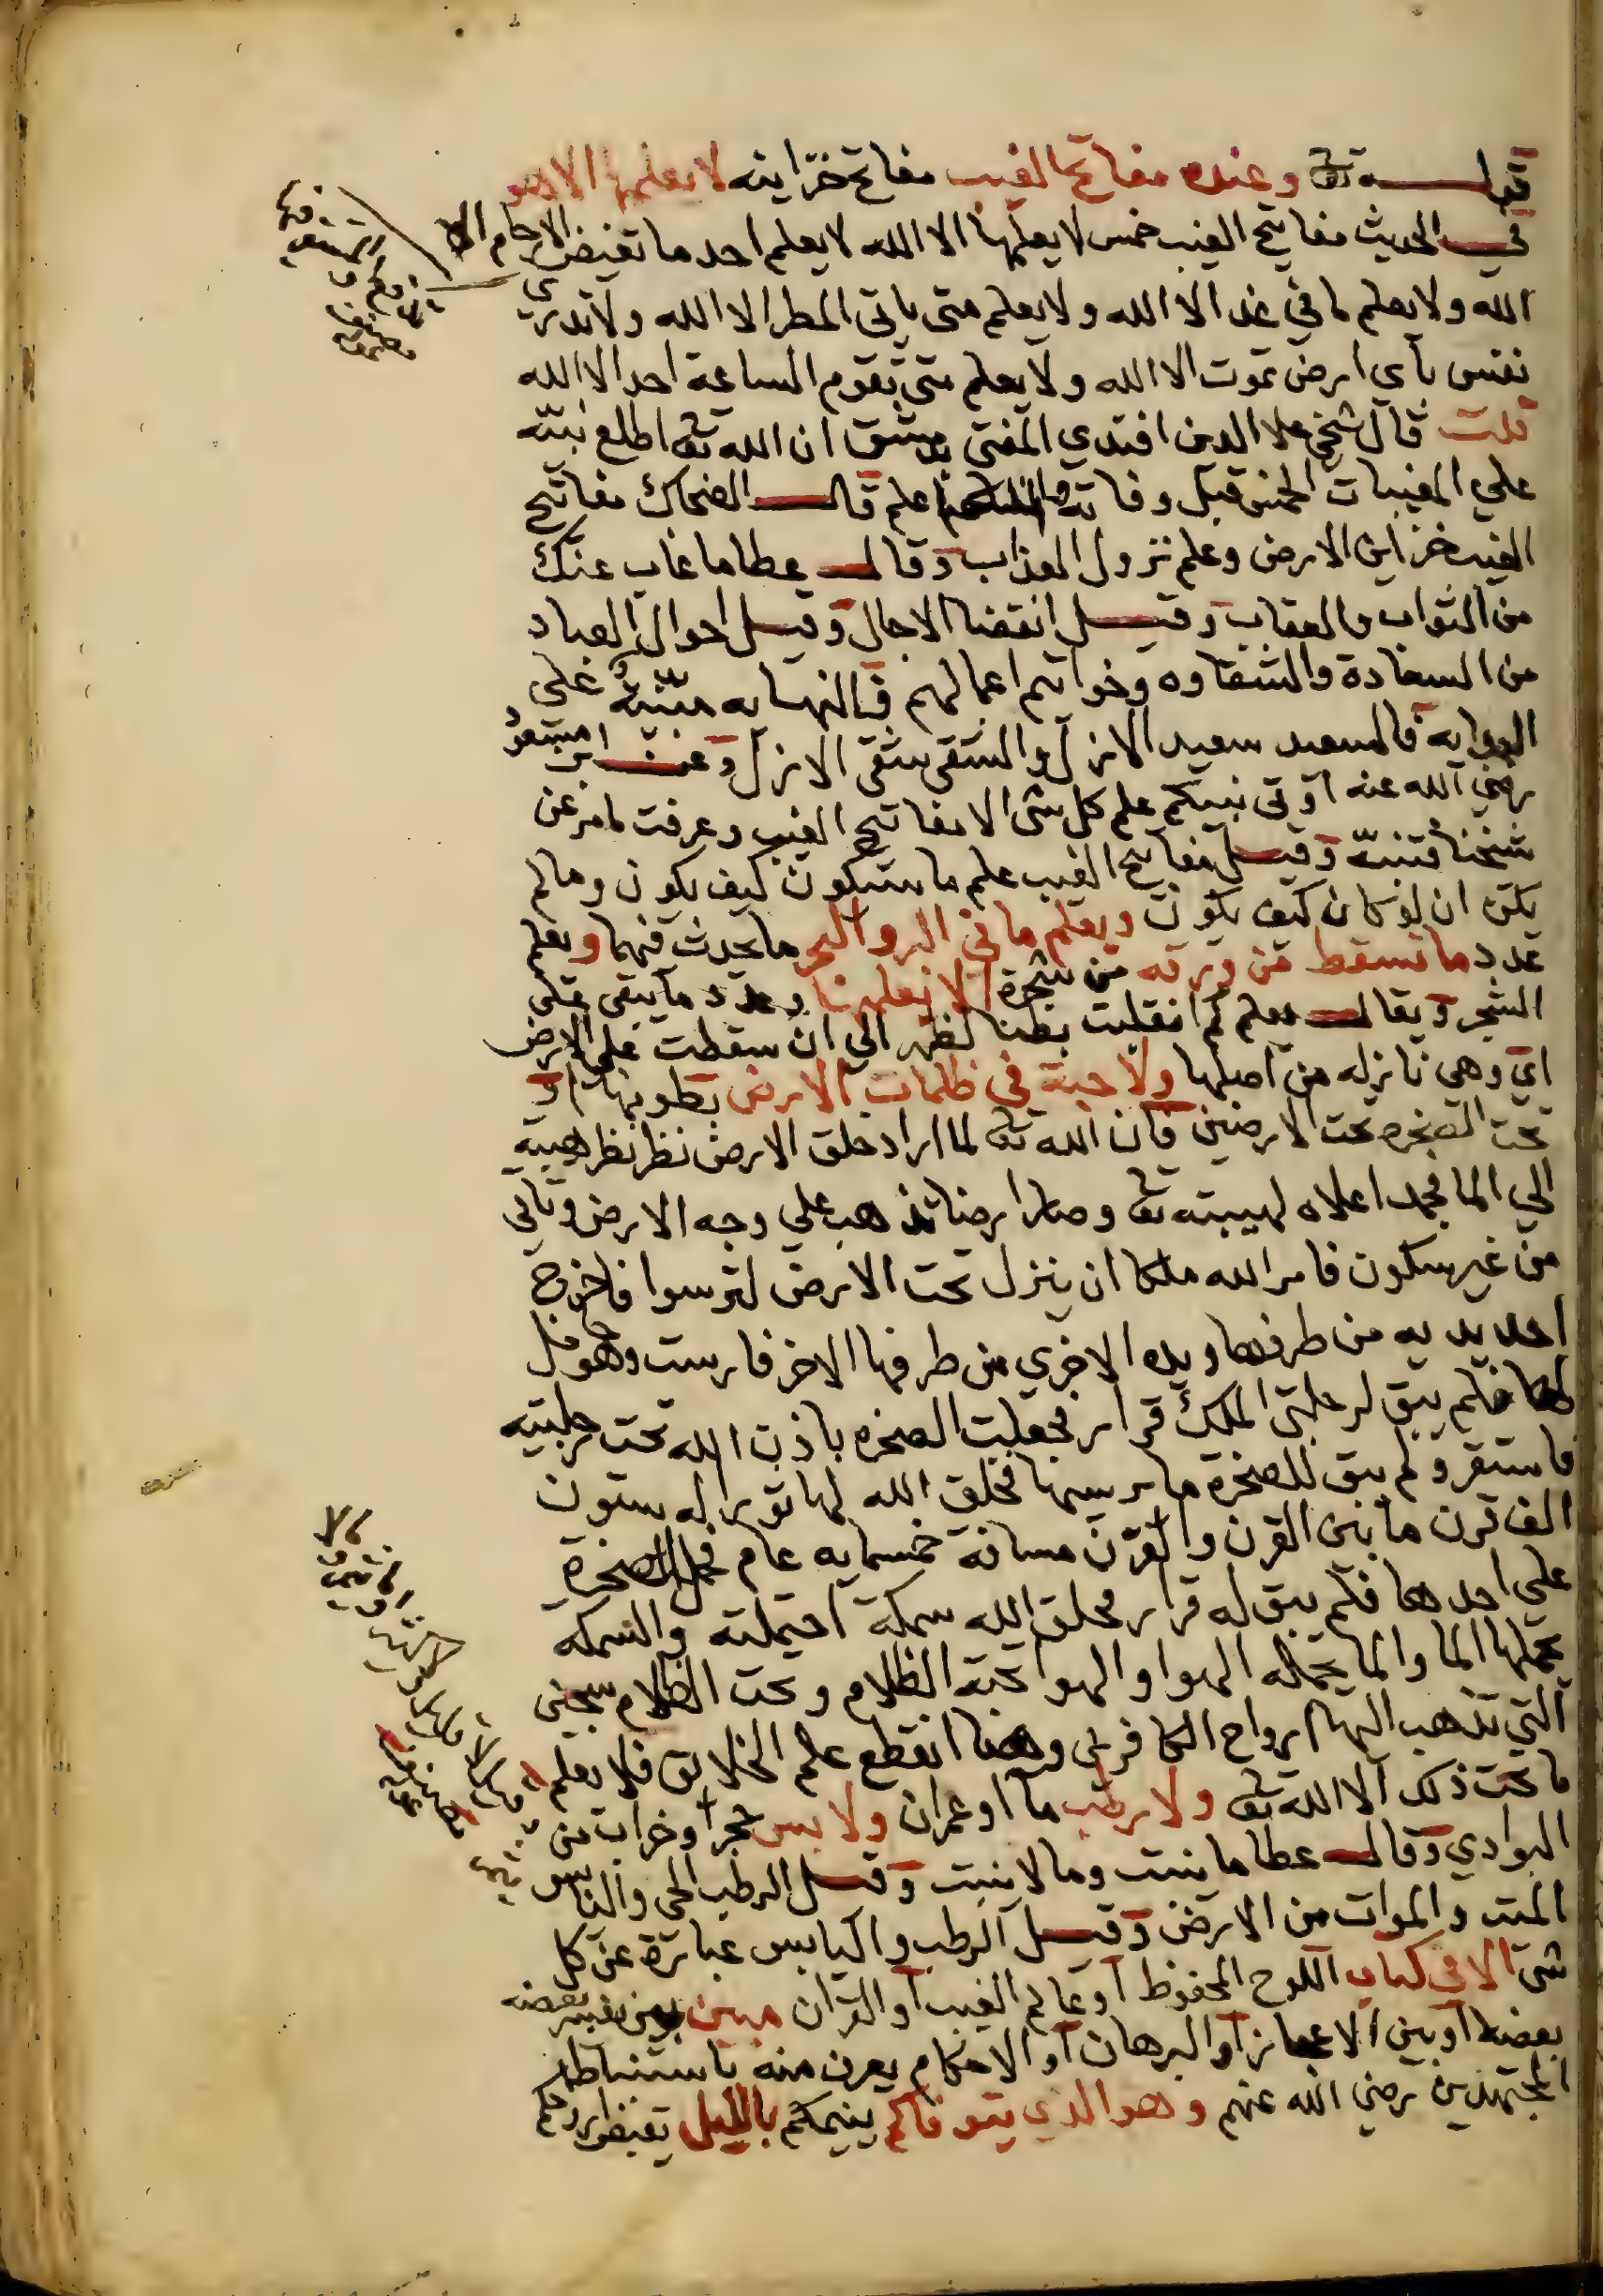 قوله تع وعنده مفاتح الغيب مفاتح خزاينه لا يعلمها الا هو
في الحديث مفاتيح الغيب خمس لا يعلمها الا الله لا يعلم احد ما تغيض الارحام الا
الله ولا يعلم ما في غد الا الله ولا يعلم متى ياتي المطر الا الله ولا تدري
نفس باي ارض تموت الا الله ولا يعلم متى تقوم الساعة احد الا الله
قلت قال شيخي علا الدين افندي المفتي بدمشق ان الله تع اطلع نبيّه
علي المغيبات الخمس قبل وفاته والله اعلم قال الضحاك مفاتيح
الغيب خزاين الارض وعلم نزول العذاب وقال عطا ما غاب عنك
من الثواب والعقاب وقيل انقضا الاجال وقيل احوال العباد
من السعادة والشقاوه وخواتم اعمالهم فالنهايه مبنيّة علي
البدايه فالسعيد سعيد الازل والشقي شقي الازل وعن ابن مسعود
رضي الله عنه اوتى نبيكم علم كل شى الا مفاتيح الغيب وعرفت ما مر عن
شيخنا فتنبّه وقيل مفاتيح الغيب علم ما سيكون كيف يكون وما لم
يكن ان لو كان كيف يكون ويعلم ما في البر والبحر ما يحدث فيهما ويعلم
عدد ما تسقط من ورقه من شجرة الا يعلمها وعدد ما يبقى على
الشجر ويقال يعلم كم انقلبت بطنا لظهر الي ان سقطت علي الارض
اي وهي نازله من اصلها ولا حبة في ظلمات الارض بطونها او
تحت الصخره تحت الارضين فان الله تع لما اراد خلق الارض نظر نظر هيبة
الي الما فجمد اعلاه لهيبته تع وصار ارضا تذهب علي وجه الارض وتاتي
من غير سكون فامر الله ملكا ان ينزل تحت الارض لترسوا فاخرج
احد يديه من طرفها ويده الاخري من طرفها الاخر فارست وهو حامل
لها فلم يبق لرجلي الملك قرار فجعلت الصخره باذن الله تحت رجليه
فاستقر ولم يبق للصخرة ما يرسيها فخلق الله لها ثورا له ستون
الف قرن ما بين القرن والقرن مسافة خمسمايه عام فحمل الصخرة
على احدهما فلم يبق له قرار فخلق الله سمكة احتملته والسمكه
يحملها الما والما يحمله الهوا والهوا تحته الظلام وتحت الظلام سجين
التي تذهب اليها ارواح الكافرين وهنا انقطع علم الخلايق فلا يعلم
ما تحت ذلك الا الله تع ولا رطب ما او عمران ولا يابس حجر او خراب من
البوادي وقال عطا ما ينبت وما لا ينبت وقيل الرطب الحي واليابس
الميت والموات من الارض وقيل الرطب واليابس عبارة عن كل
شى الا في كتاب اللوح المحفوظ او عالم الغيب او القران مبين يفسر بعضه
بعضا او بين الاعجاز او البرهان او الاحكام يعرف منه باستنباط
المجتهدين رضي الله عنهم وهو الذي يتوفاكم ينيمكم بالليل يقبض ارواحكم